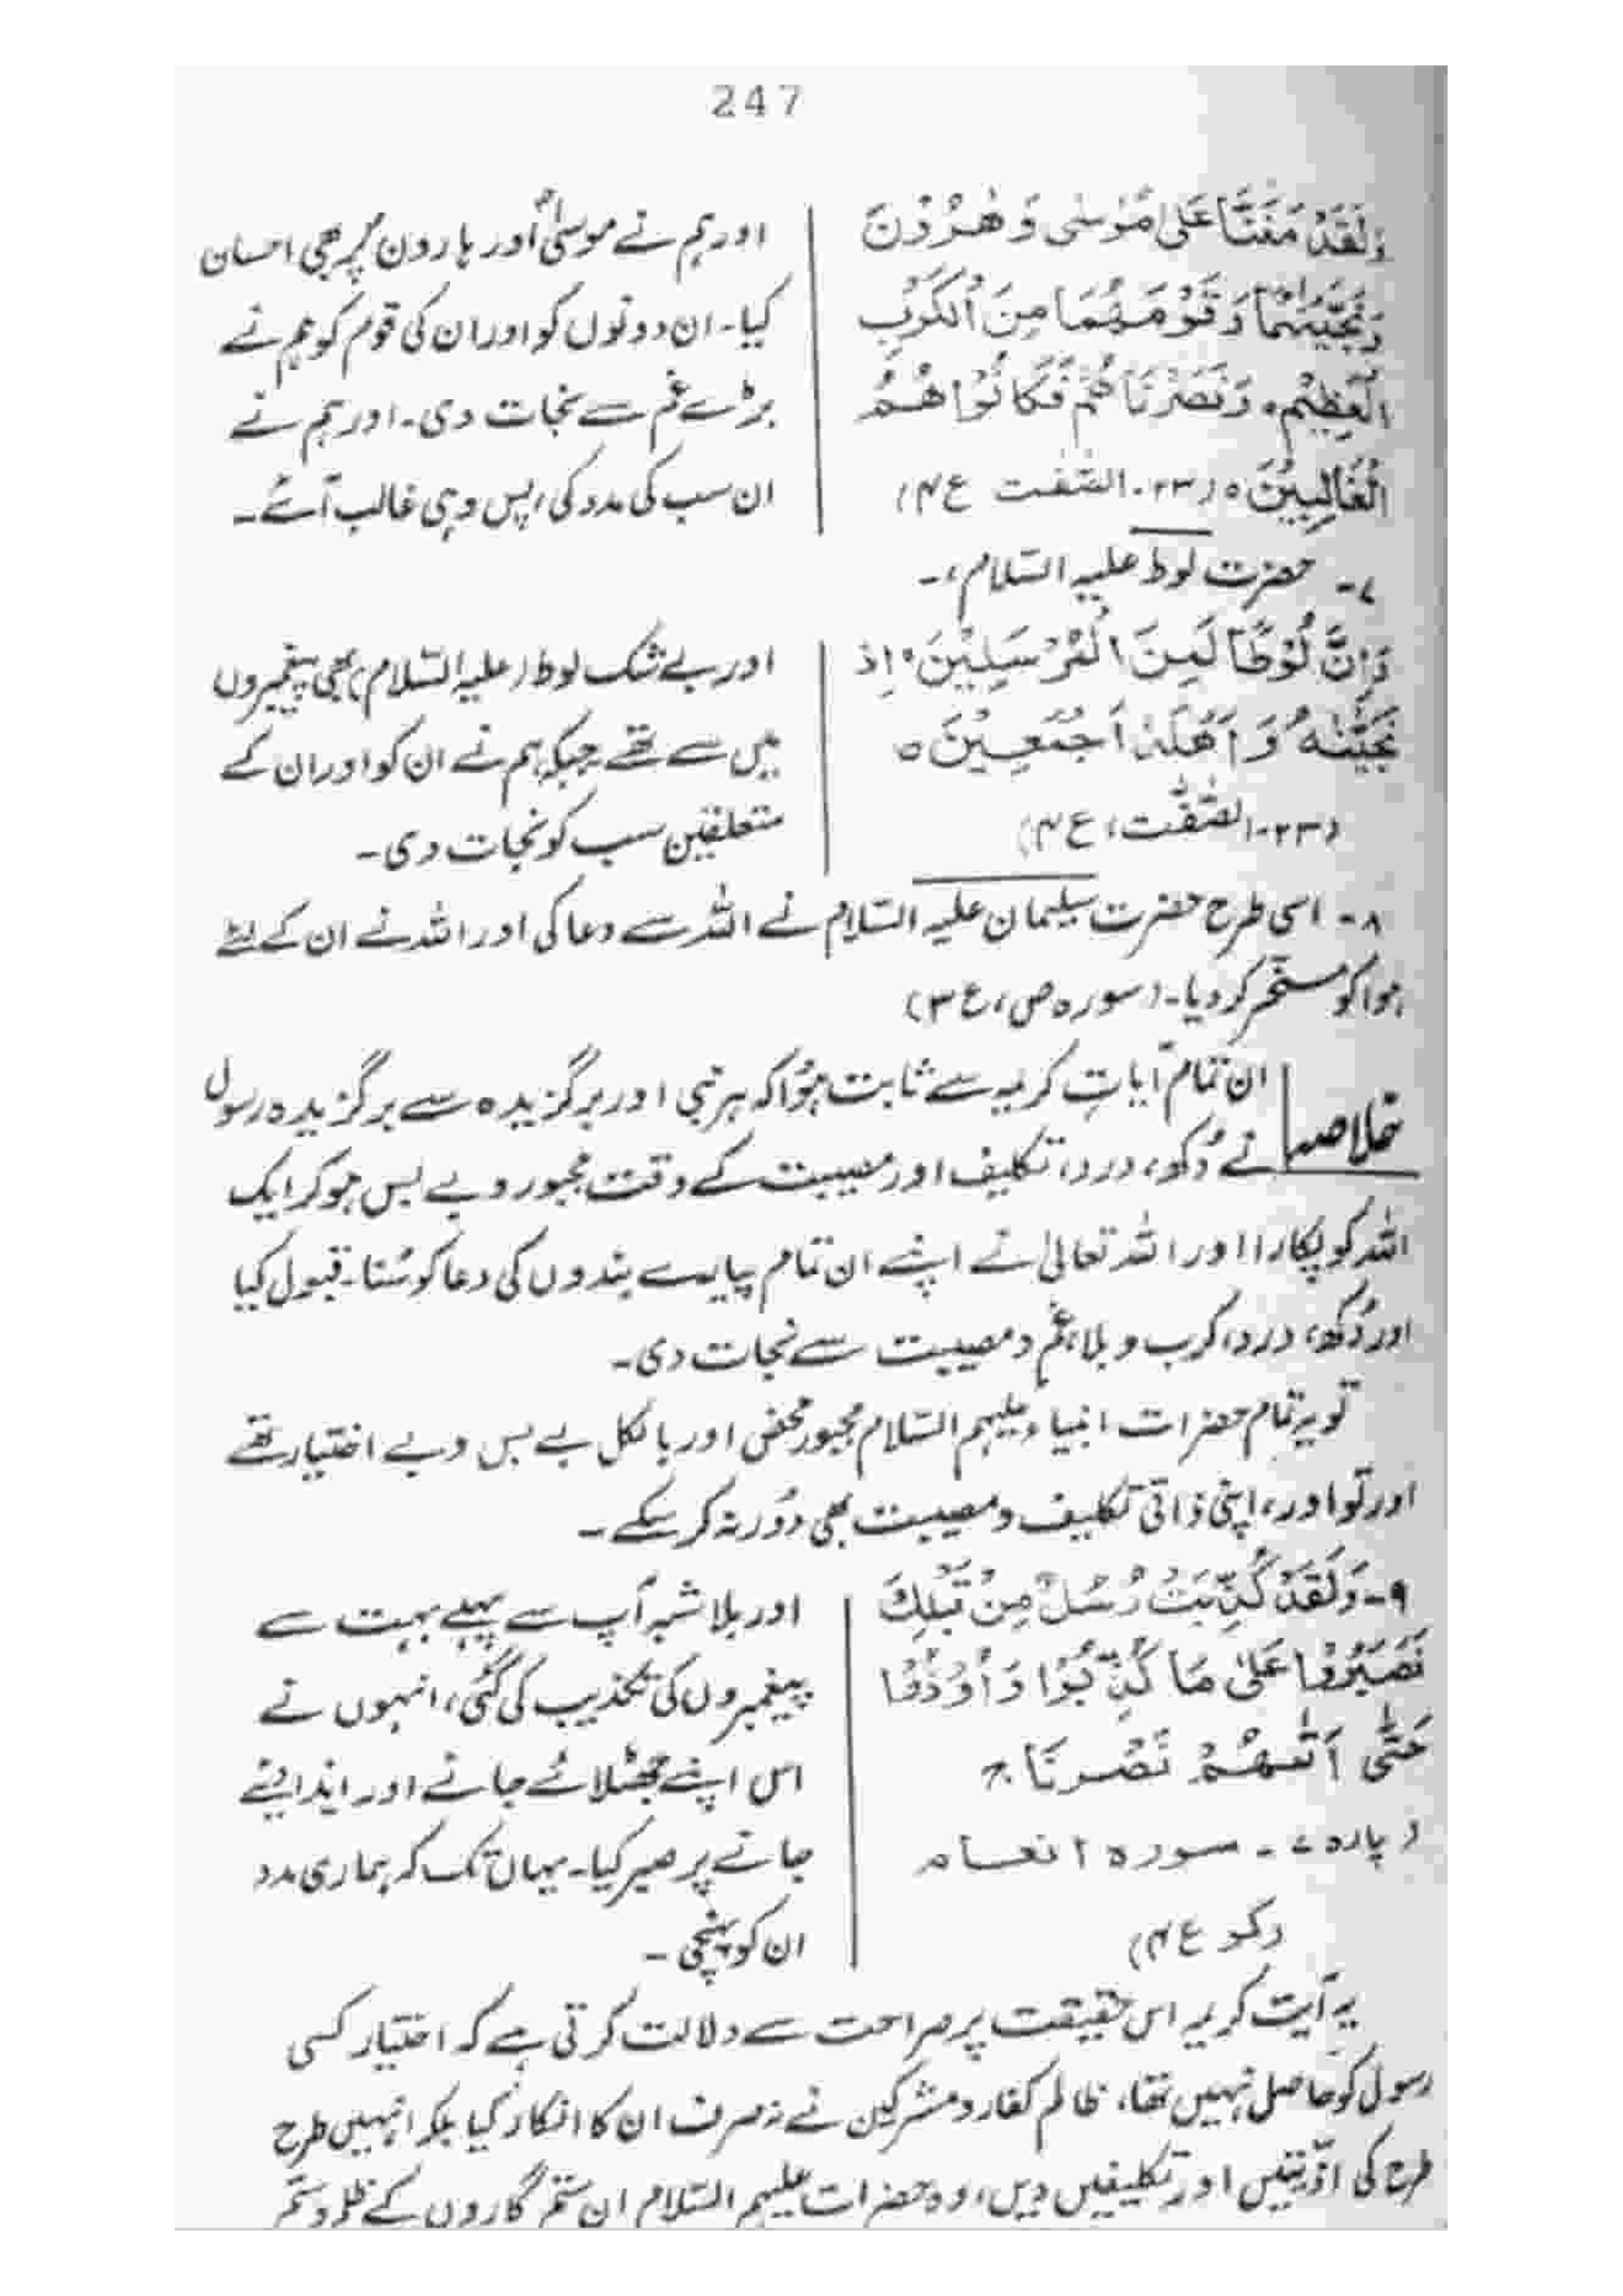 247
وَلَقَدْ مَنَنَّا عَلٰی مُوْسٰی وَهٰرُوْنَ
وَنَجَّيْنٰهُمَا وَقَوْمَهُمَا مِنَ الْكَرْبِ
الْعَظِيْمِ۔ وَنَصَرْنَاهُمْ فَكَانُوْا هُمُ
الْغَالِبِيْنَ ہ (۲۳۔ الصّٰفّٰت ع۴)
اور ہم نے موسٰیؑ اور ہارونؑ پر بھی احسان
کیا۔ ان دونوں کو اور ان کی قوم کو ہم نے
بڑے غم سے نجات دی۔ اور ہم نے
ان سب کی مدد کی، پس وہی غالب آئے۔
۷۔ حضرت لوط علیہ السّلام،۔
وَاِنَّ لُوْطًا لَمِنَ الْمُرْسَلِيْنَ۔ اِذْ
نَجَّيْنٰهُ وَاَهْلَهٗ اَجْمَعِيْنَ ہ
(۲۳۔ الصّٰفّٰت، ع۴)
اور بے شک لوط (علیہ السّلام) بھی پیغمبروں
میں سے تھے جبکہ ہم نے ان کو اور ان کے
متعلقین سب کو نجات دی۔
۸۔ اسی طرح حضرت سلیمان علیہ السّلام نے اللہ سے دعا کی اور اللہ نے ان کے لئے
ہوا کو مسخّر کر دیا۔ (سورہ ص، ع ۳)
خلاصہ
ان تمام آیاتِ کریمہ سے ثابت ہوُا کہ ہر نبی اور برگزیدہ سے برگزیدہ رسول
نے دُکھ، درد، تکلیف اور مصیبت کے وقت مجبور و بے بس ہو کر ایک
اللہ کو پکارا اور اللہ تعالیٰ نے اپنے ان تمام پیارے بندوں کی دعا کو سُنا۔ قبول کیا
اور دُکھ، درد، کرب و بلا، غم و مصیبت سے نجات دی۔
تو یہ تمام حضرات انبیاء علیہم السّلام مجبور محض اور بالکل بے بس و بے اختیار تھے
اور تو اور، اپنی ذاتی تکلیف و مصیبت بھی دُور نہ کر سکے۔
۹۔ وَلَقَدْ كُذِّبَتْ رُسُلٌ مِنْ قَبْلِكَ
فَصَبَرُوْا عَلٰی مَا كُذِّبُوْا وَاُوْذُوْا
حَتّٰی اَتٰىهُمْ نَصْرُنَا ج
(پارہ ۷ ۔ سورہ انعام
رکو ع ۴)
اور بلاشبہ آپ سے پہلے بہت سے
پیغمبروں کی تکذیب کی گئی، انہوں نے
اس اپنے جھٹلائے جانے اور ایذا دیئے
جانے پر صبر کیا۔ یہاں تک کہ ہماری مدد
ان کو پہنچی۔
یہ آیت کریمہ اس حقیقت پر صراحت سے دلالت کرتی ہے کہ اختیار کسی
رسول کو حاصل نہیں تھا، ظالم کفار و مشرکین نے نہ صرف ان کا انکار کیا بلکہ انہیں طرح
طرح کی اذّیتیں اور تکلیفیں دیں، وہ حضرات علیہم السّلام ان ستم گاروں کے ظلم و ستم